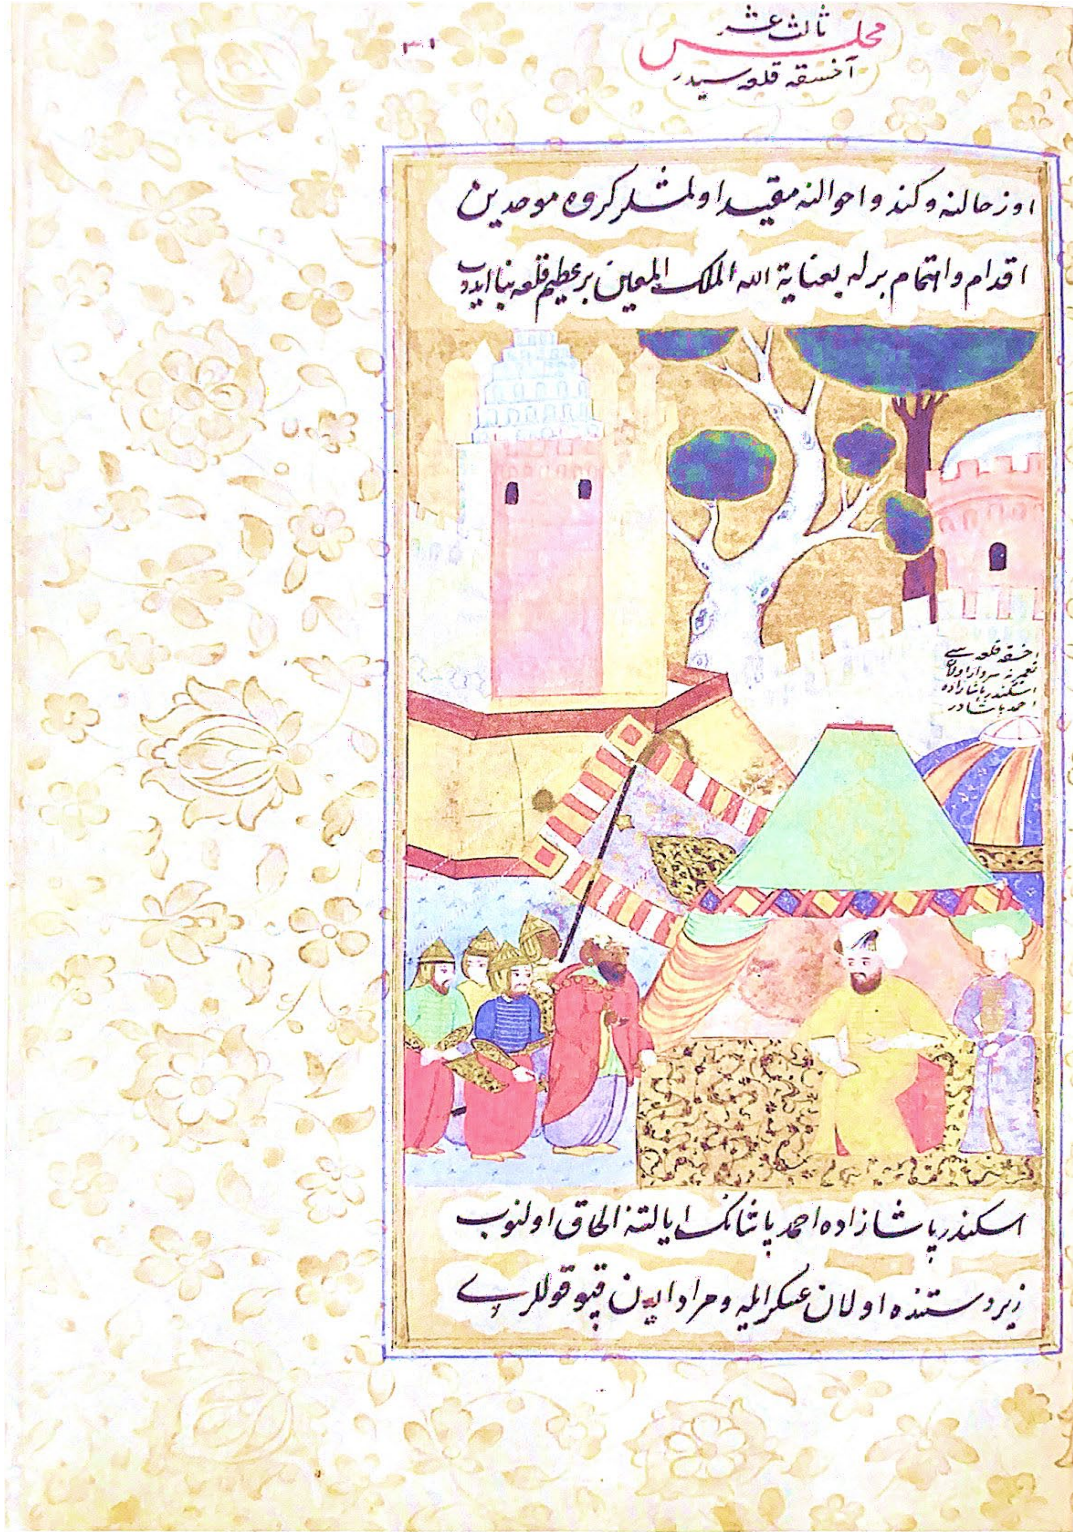 ثالث عشر
مجلس
آخسقه قلعه سیدر
٣١
اوز حالنه وکند و احوالنه مقید اولمشلر کروه موحدین
اقدام و اهتمام برله بعنایة الله الملک المعین بر عظیم قلعه بنا ایدوب
اخسقه قلعه سی
تعمیرنه سردار اولان
اسکندر پاشازاده
احمد پاشادر
اسکندر پاشازاده احمد پاشانک ایالتنه الحاق اولنوب
زیر دستنده اولان عسکر ایله و مراد ایدن قپو قوللری